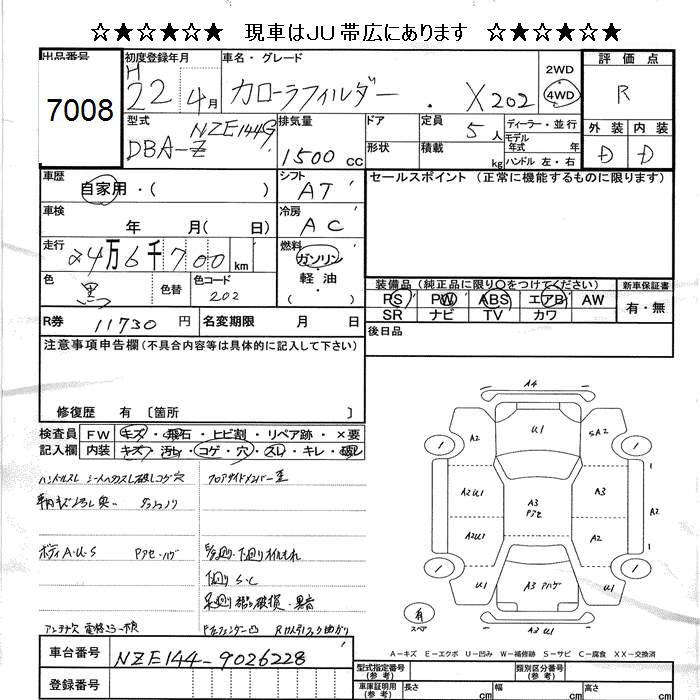 ☆★☆★☆★ 現車はJU帯広にあります ☆★☆★☆★
出品番号 初度登録年月 車名・グレード 評価点
7008 H 22年 4月 カローラフィルダー . X202 2WD 4WD R
型式 DBA-Z NZE144G 排気量 1500 cc ドア 定員 5人 ディーラー・並行 外装 内装
形状 積載 kg モデル年式 年 ハンドル 左・右 D D
車歴 自家用・( ) シフト AT セールスポイント (正常に機能するものに限ります)
車検 年 月( 日) 冷房 AC
走行 24万6千700 km 燃料 ガソリン 軽・油 ( )
色 黒 色替 色コード 202
装備品(純正品に限り○をつけてください) 新車保証書
PS PW ABS エアB AW 有・無
SR ナビ TV カワ
R券 11730円 名変期限 月 日 後日品
注意事項申告欄(不具合内容等は具体的に記入して下さい)
修復歴 有 〔箇所 〕
検査員 FW キズ・飛石・ヒビ割・リペア跡・×要
記入欄 内装 キズ・汚れ・コゲ・穴・スレ・キレ・破レ
ハンドルスレ
フロアサイドメンバー歪
ボディA・U・S
下廻りS・C
A4
A2 U1 SA2
1 1
A2U1 A3 Pアセ A3
1 2
A2U1 A2
1 1
U1 A3 Pハゲ U1
有 スペア A3U1
A-キズ E-エクボ U-凹み W-補修跡 S-サビ C-腐食 XX-交換済
車台番号 NZE144-9026228
型式指定番号(参考) 類別区分番号(参考)
登録番号
車庫証明用(参考) 長さ cm 幅 cm 高さ cm